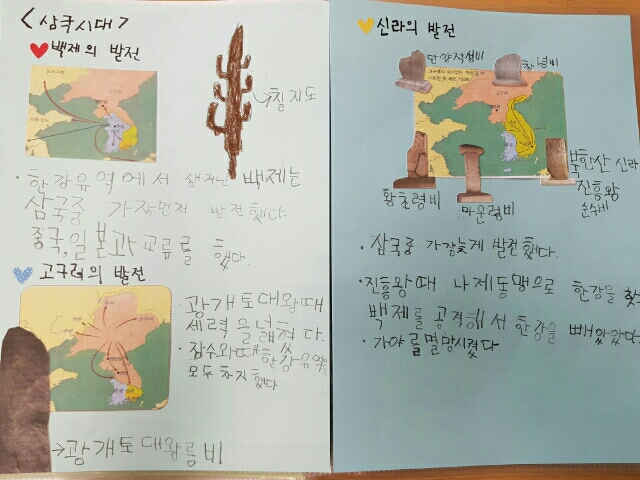 <삼국시대>
백제의 발전
칠지도
· 한강유역에서 생겨난 백제는
삼국중 가장먼저 발전했다.
중국,일본과 교류를 했다.
고구려의 발전
· 광개토대왕때
세력을 넓혔다.
· 장수와때 한강유역을
모두 차지했다
→광개토대왕릉비
신라의 발전
단양적성비
창녕비
북한산 신라
진흥왕
순수비
황초령비
마운령비
· 삼국중 가장늦게 발전했다.
· 진흥왕때 나제동맹으로 한강을 찾
백제를 공격해서 한강을 빼앗았다.
· 가야를멸망시켰다